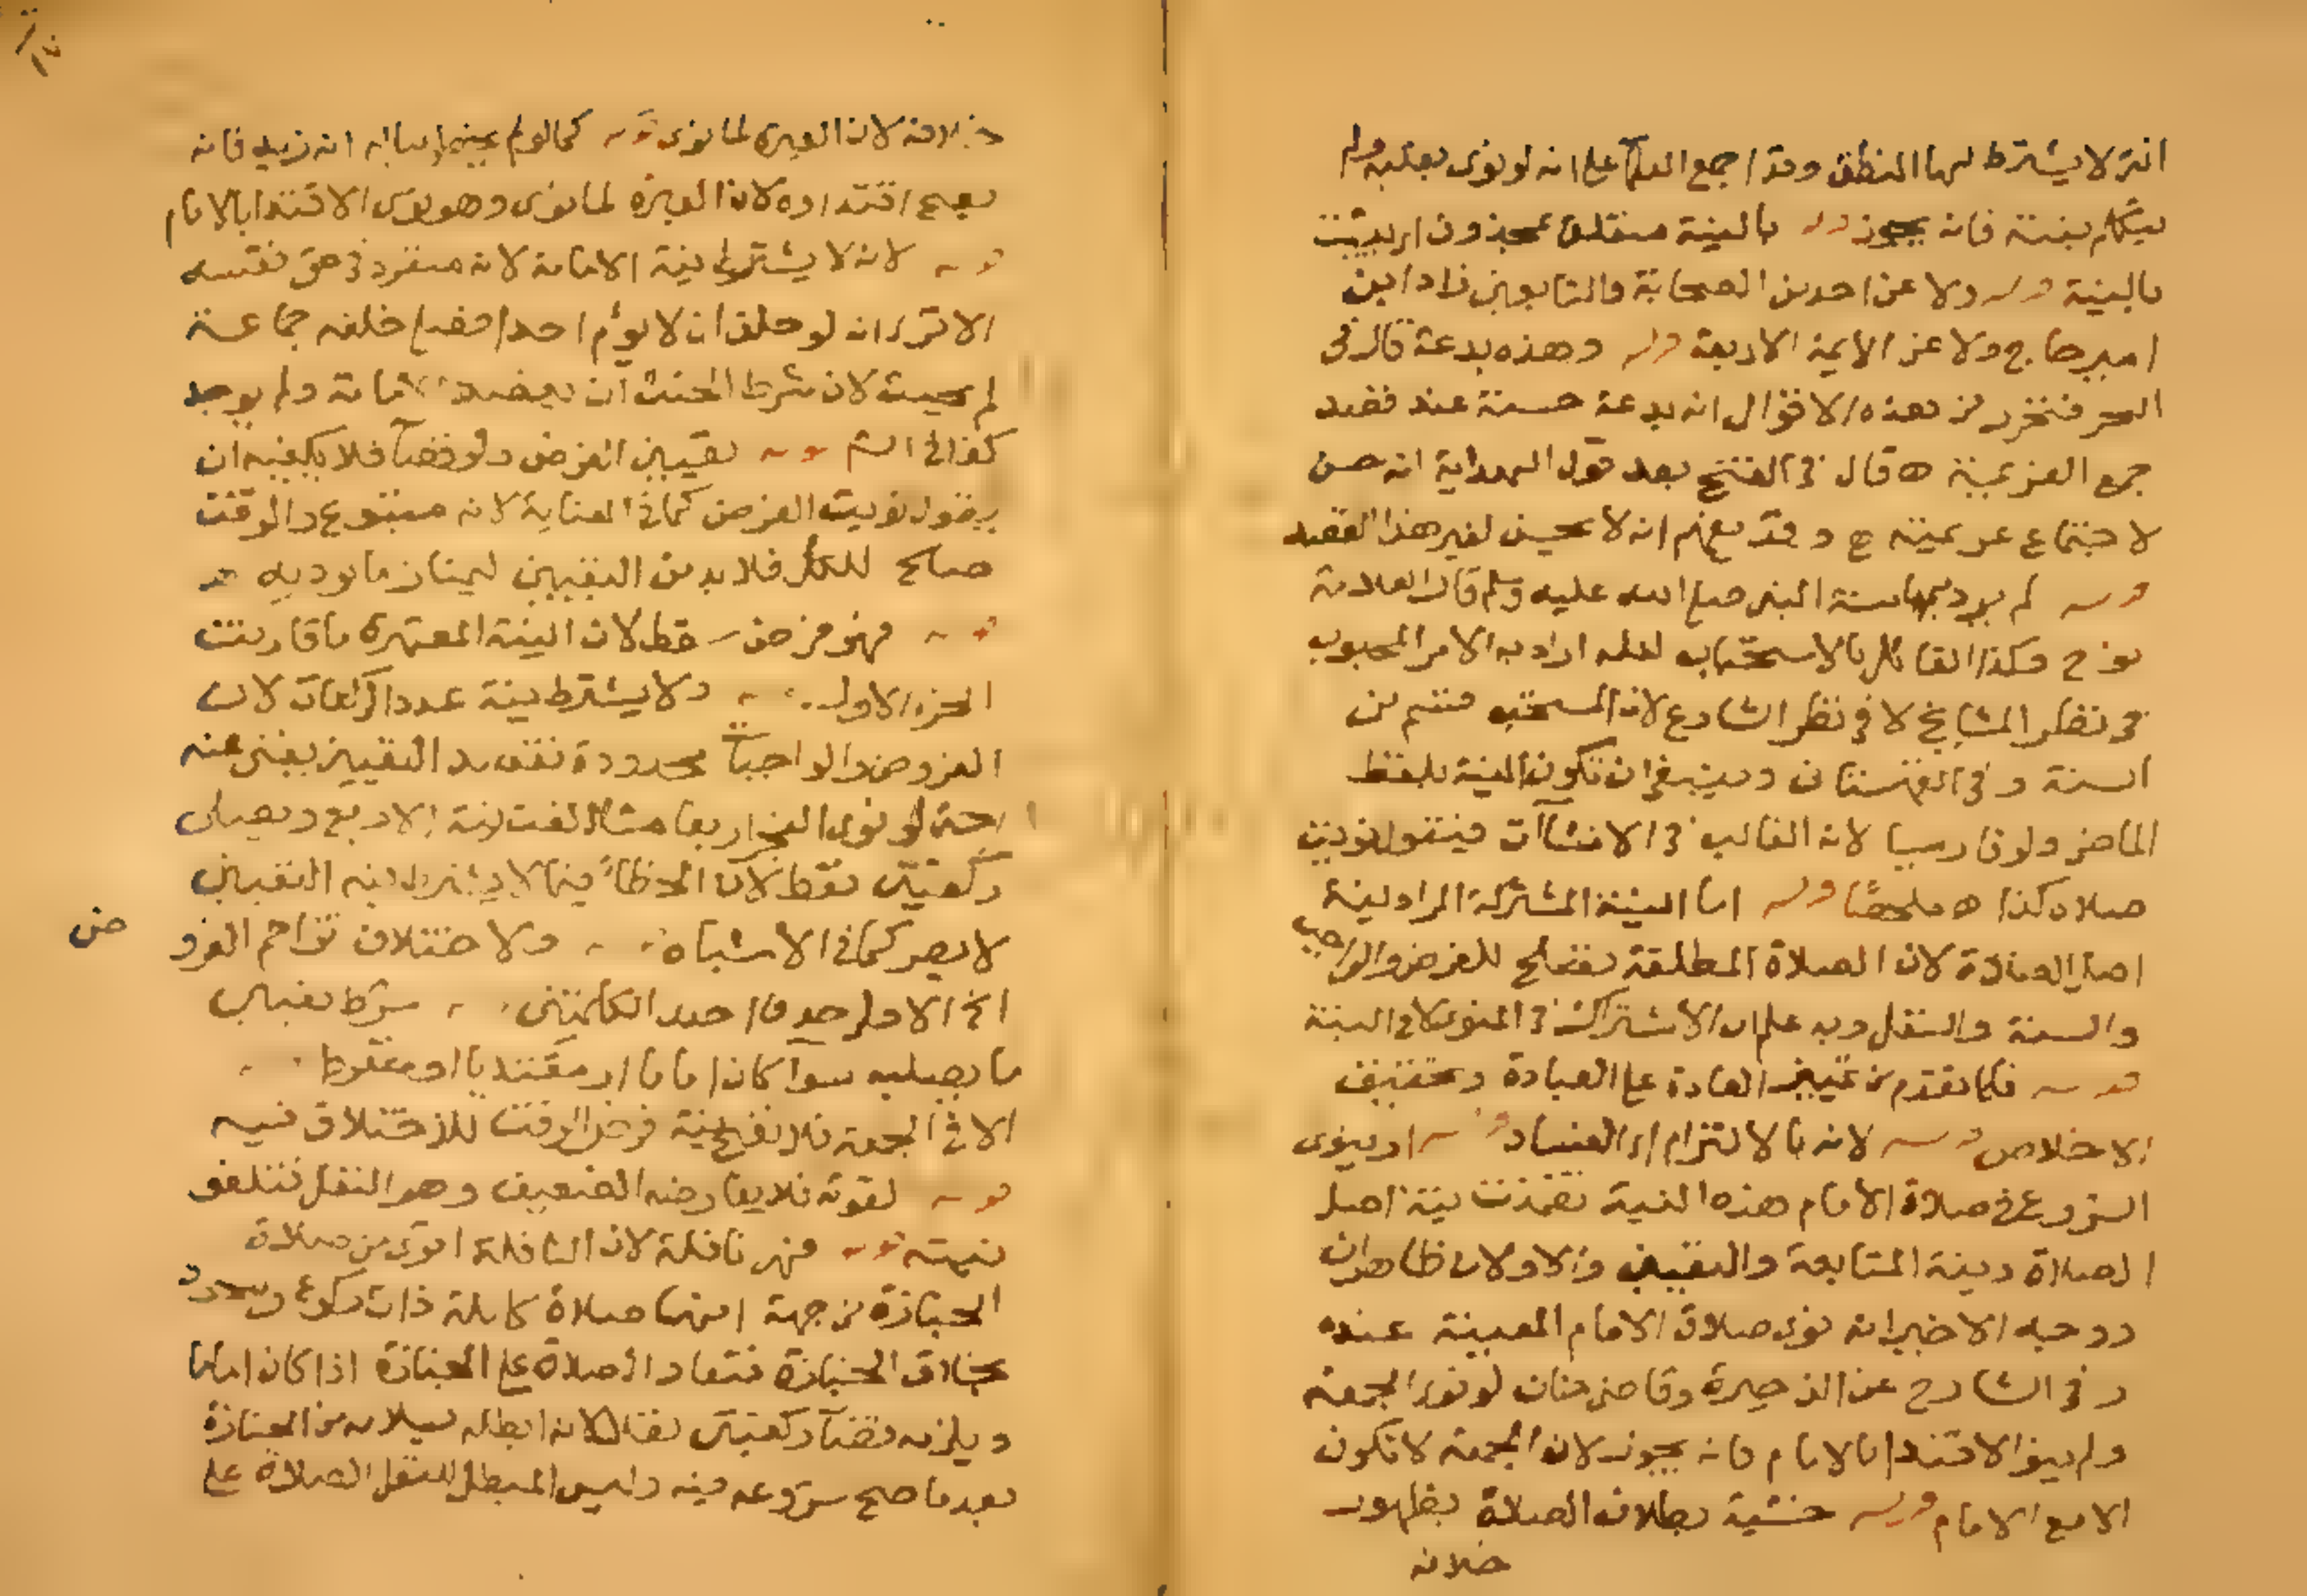 انه لا يشترط لها النطق وقد اجمع العلما على انه لو نوى بقلبه ولم
يتكلم بنيته فانه يجوز قوله بالنية متعلق بمحذوف اي يثبت
بالنية قوله ولا عن احد من الصحابة والتابعين زاد ابن
امير حاج ولا عن الايمة الاربعة قوله وهذه بدعة قال في
البحر فتحرر من هذه الاقوال انه بدعة حسنة عند قصد
جمع العزيمة اه قال في الفتح بعد قول الهداية انه حسن
لاجتماع عزيمته وقد يفهم انه لا يحسن لغير هذا القصد
قوله لم يرد بها سنة النبي صلى الله عليه وسلم قال العلامة
نوح وكذا القائل بالاستحباب لعله اراد به الامر المحبوب
في نظر المشايخ لا في نظر الشارع لان المستحب قسم من
السنة وفي القهستاني وينبغي ان تكون النية بلفظ
الماضي ولو فارسيا لانه الغالب في الانشاآت فيقول نويت
صلاة كذا اه ملخصا قوله اما النية المشتركة المراد نية
اصل الصلاة لان الصلاة المطلقة تصلح للفرض والواجب
والسنة والنفل وبه علم ان الاشتراك في المنوي لا في النية
قوله فكما تقدم من تمييز العادة على العبادة وتحقيق
الاخلاص قوله لانه بالالتزام اي الفساد قوله او ينوي
الشروع في صلاة الامام هذه النية تضمنت نية اصل
الصلاة ونية المتابعة والتعيين والاولان ظاهران
ووجه الاخير انه نوى صلاة الامام المعينة عنده
وفي الشارح عن الذخيرة وقاضي خان لو نوى الجمعة
ولم ينو الاقتدا بالامام فانه يجوز لان الجمعة لا تكون
الا مع الامام قوله خشية بطلان الصلاة بظهور
خلافه
خلافه لان العبرة لما نوى قوله كما لو لم يخطر بباله انه زيد فانه
يصح اقتداوه لان العبرة لما نوى وهو نوى الاقتدا بالامام
قوله لانه لا يشترط نية الامامة لانه منفرد في حق نفسه
الا ترى انه لو حلف ان لا يؤم احدا فصلى خلفه جماعة
لم يحنث لان شرط الحنث ان يقصد الامامة ولم يوجد
كذا في الشرح قوله تعيين الفرض ولو قضآ فلا يكفيه ان
يقول نويت الفرض كما في العناية لانه متنوع والوقت
صالح للكل فلا بد من التعيين ليمتاز ما يوديه
قوله فهو فرض سقط لان النية المعتبرة ما قارنت
الجزء الاول قوله ولا يشترط نية عدد الركعات لان
الفروض والواجبات محدودة فقصد التعيين يغني عنه
حتى لو نوى الفجر اربعا مثلا لغت نية الاربع ويصلي
ركعتين فقط لان الخطأ فيما لا يشترط فيه التعيين
لا يضر كما في الاشباه قوله ولاختلاف تزاحم الفرو
ض
الخ الاولى حذف احدى الكلمتين قوله شرط تعيين
ما يصليه سوآ كان اماما او مقتديا او منفردا
الا في الجمعة فلا تصح نية فرض الوقت للاختلاف فيه
قوله لقوته فلا يعارضه الضعيف وهو النفل فتلغو
نيته قوله فهي نافلة لان النافلة اقوى من صلاة
الجنازة من جهة انها صلاة كاملة ذات ركوع وسجود
بخلاف الجنازة فتعاد الصلاة على الجنازة اذا كان اماما
ويلزمه قضآ ركعتين نفلا لانه ابطله بسلامه من الجنازة
بعد ما صح شروعه فيه وليس المبطل للنفل الصلاة على